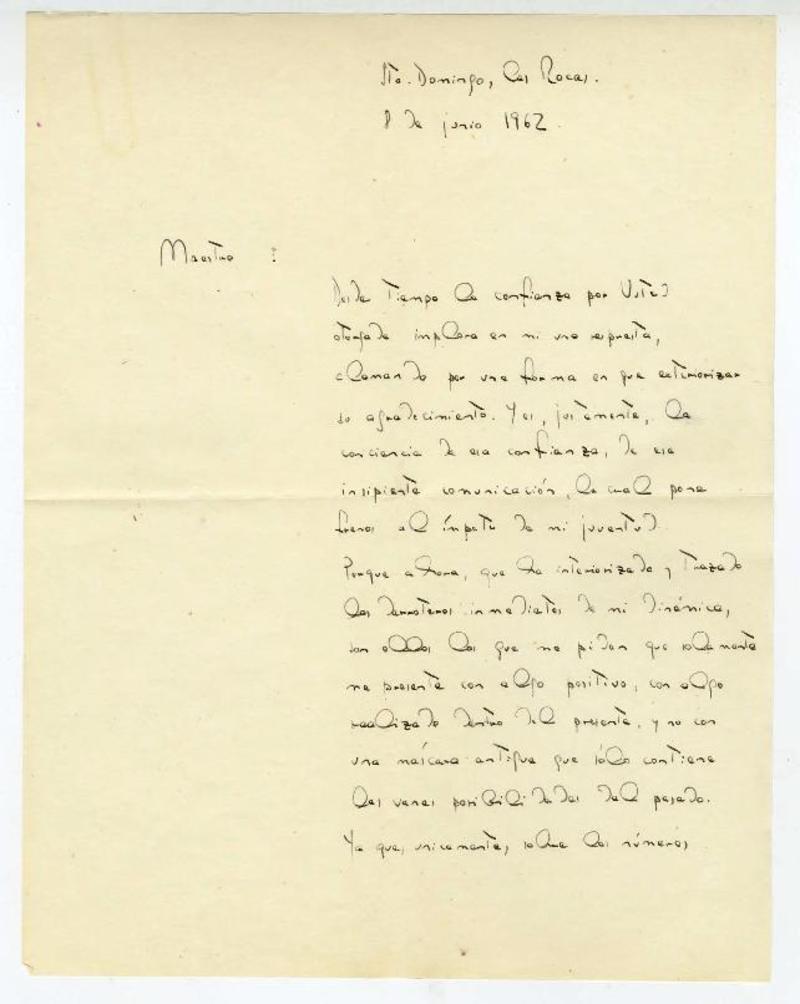 Sto. Domingo, las Rocas.
8 de junio 1962.
Maestro :
Desde tiempo la confianza por Usted
otorgada implora en mi una respuesta,
clamando por una forma en que exteriorizar
su agradecimiento. Y es, justamente, la
conciencia de esa confianza, de esa
insipiente comunicación, la cual pone
frenos al ímpetu de mi juventud.
Porque ahora, que ha interiorizado y trazado
los derroteros inmediatos de mi dinámica,
son ellos los que me piden que solamente
me presente con algo positivo, con algo
realizado dentro del presente, y no con
una máscara antigua que sólo contiene
las vanas posibilidades del pasado.
Ya que, unicamente, sobre los números